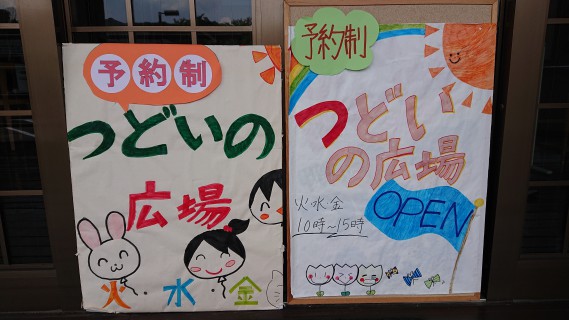 予約制
つどいの
広場
火・水・金
予約制
つどい
の広場
火水金
10時～15時
OPEN